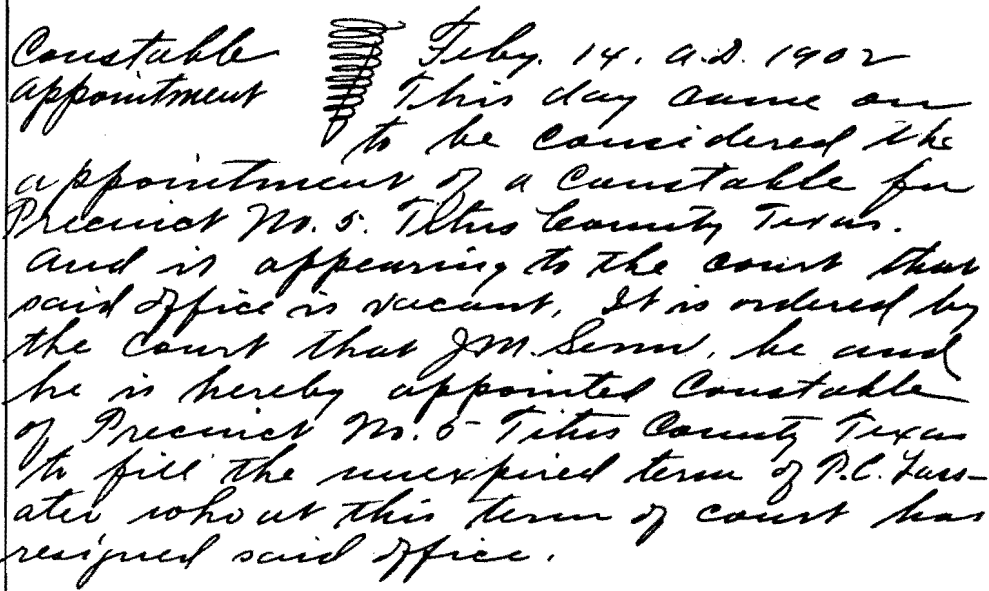 Constable Feby. 14. A.D. 1902
appointment This day came on
to be considered the
appointment of a Constable for
Precinct No. 5. Titus County Texas.
And it appearing to the court that
said office is vacant, It is ordered by
the court that J.M. Senn, be and
he is hereby appointed Constable
of Precinct No. 5 Titus County Texas
to fill the unexpired term of P.C.
who at this term of court has
resigned said office.